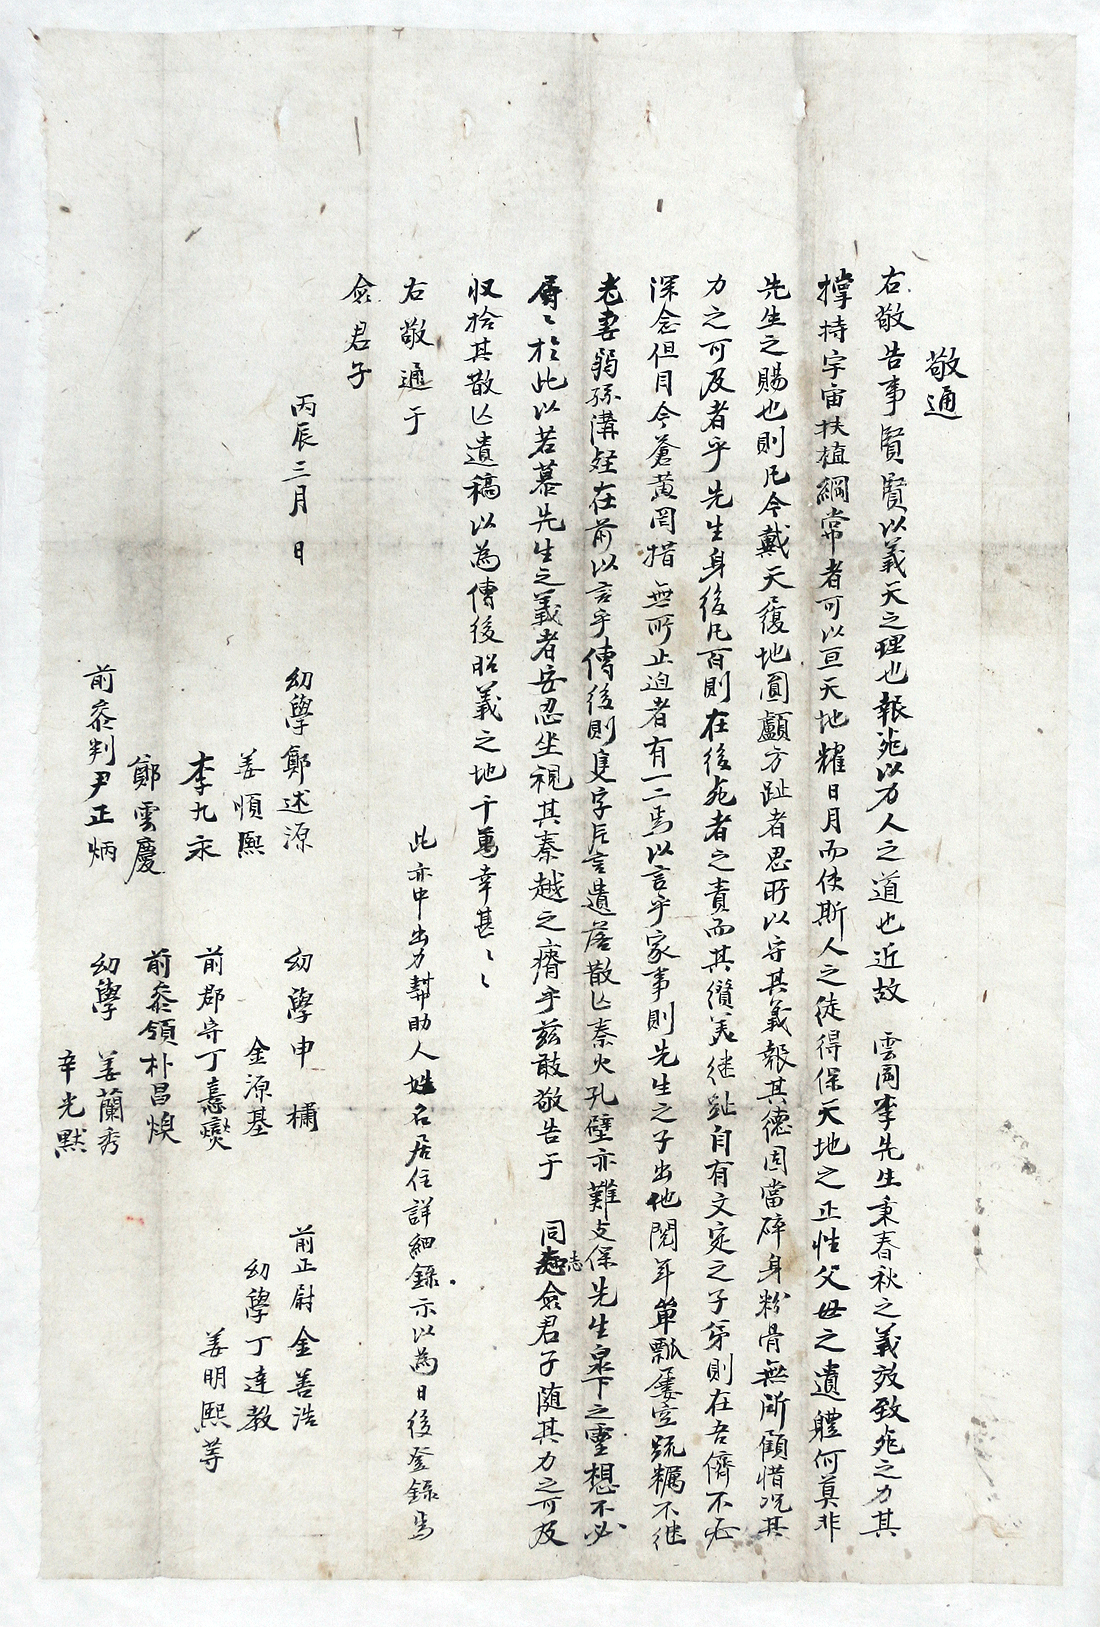 敬通
右敬告事賢賢以義天之理也報死以力人之道也近故 雲岡李先生秉春秋之義效致死之力其
撑持宇宙扶植綱常者可以亘天地耀日月而使斯人之徒得保天地之正性父母之遺體何莫非
先生之賜也則凡今戴天履地圓顱方趾者思所以守其義報其德固當碎身粉骨無所顧惜况其
力之可及者乎先生身後凡百則在後死者之責而其纘羨继趾自有文定之子弟則在吾儕不必
深念但目今蒼黃罔措無所止迫者有一二焉以言乎家事則先生之子出他閱年簞瓢屢空疏糲不继
老妻弱孫溝壑在前以言乎傳後則隻字片言遺落散亡秦火孔壁亦難支保先生泉下之靈想不必
屑〻於此以若慕先生之義者安忍坐視其秦越之瘠乎玆敢敬告于 同志僉君子随其力之可及
収拾其散亡遺稿以為傳後昭義之地千萬幸甚〻〻
右敬通于
僉君子
此亦中出力幇助人姓名居住詳細錄示以為日後登錄焉
丙辰三月 日
幼學鄭述源 幼學申橚 前正尉金善浩
姜順熙 金源基 幼學丁達教
李九永 前郡守丁憙燮 姜明熙等
鄭雲慶 前叅領朴昌煥
前叅判尹正炳 幼學姜蘭秀
辛光默